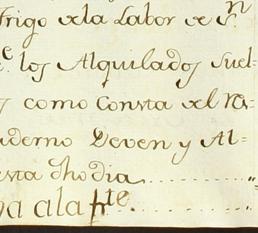 Trigo xla Labor xe Sn
e los Alquilados Suel=
s como Consta xl Re=
aderno Deven y Al=
esta dho dia
a ala fte.